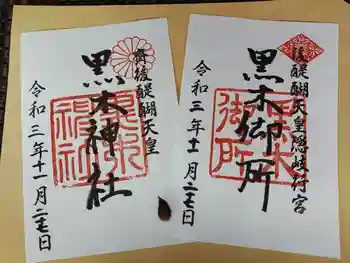 後醍醐天皇
黒木神社
令和三年十一月二七日
黒木神社
後醍醐天皇隠岐行宮
黒木御所
令和三年十一月二七日
黒木御所